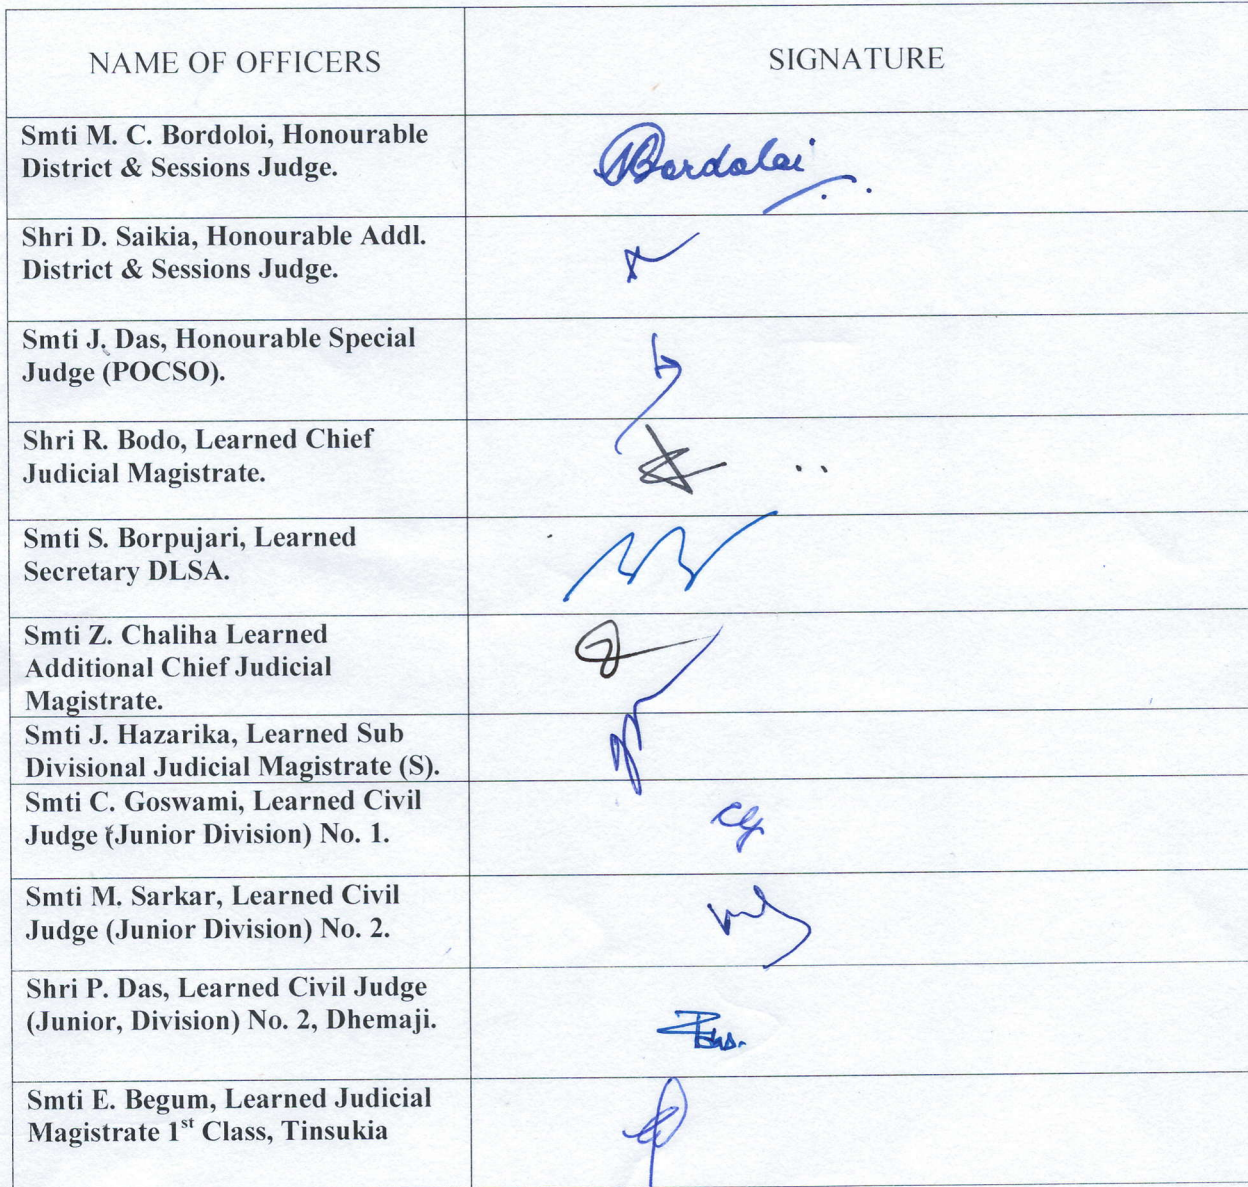 NAME OF OFFICERS
SIGNATURE
Smti M. C. Bordoloi, Honourable
District & Sessions Judge.
Bordoloi
Shri D. Saikia, Honourable Addl.
District & Sessions Judge.
Smti J. Das, Honourable Special
Judge (POCSO).
Shri R. Bodo, Learned Chief
Judicial Magistrate.
Smti S. Borpujari, Learned
Secretary DLSA.
Smti Z. Chaliha Learned
Additional Chief Judicial
Magistrate.
Smti J. Hazarika, Learned Sub
Divisional Judicial Magistrate (S).
Smti C. Goswami, Learned Civil
Judge (Junior Division) No. 1.
Cg
Smti M. Sarkar, Learned Civil
Judge (Junior Division) No. 2.
Shri P. Das, Learned Civil Judge
(Junior, Division) No. 2, Dhemaji.
Smti E. Begum, Learned Judicial
Magistrate 1st Class, Tinsukia